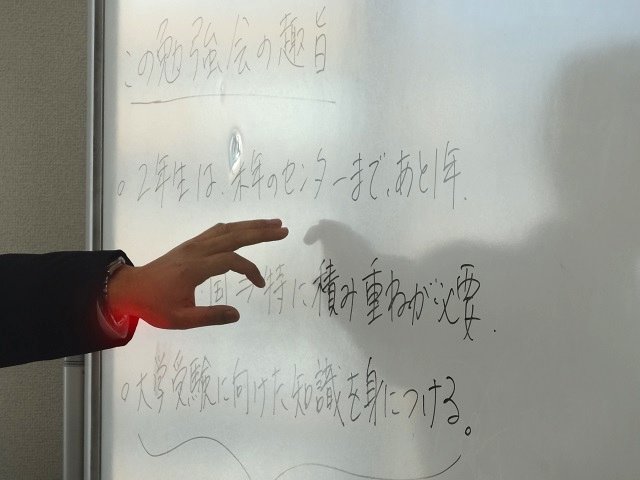 この勉強会の趣旨
。2年生は、来年のセンターまで、あと1年.
特に積み重ねが必要.
。大学受験に向けた知識を身につける。